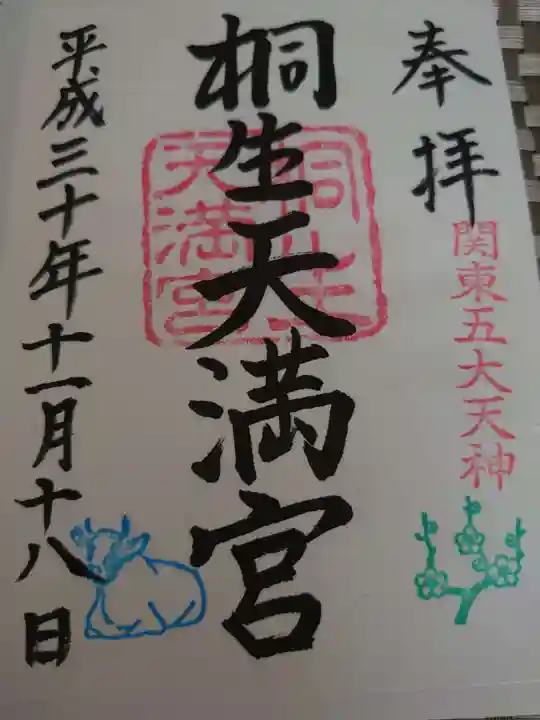 奉拝
関東五大天神
桐生天満宮
桐生
天満宮
平成三十年十一月十八日